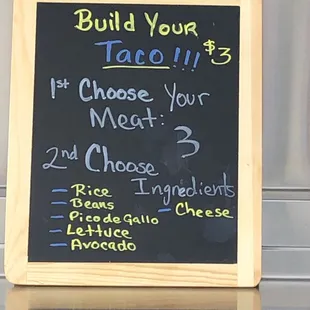 Build Your
Taco!!! $3
1st Choose Your
Meat:
2nd Choose 3
Ingredients
- Rice
- Beans
- Pico de Gallo
- Lettuce
- Avocado
- Cheese